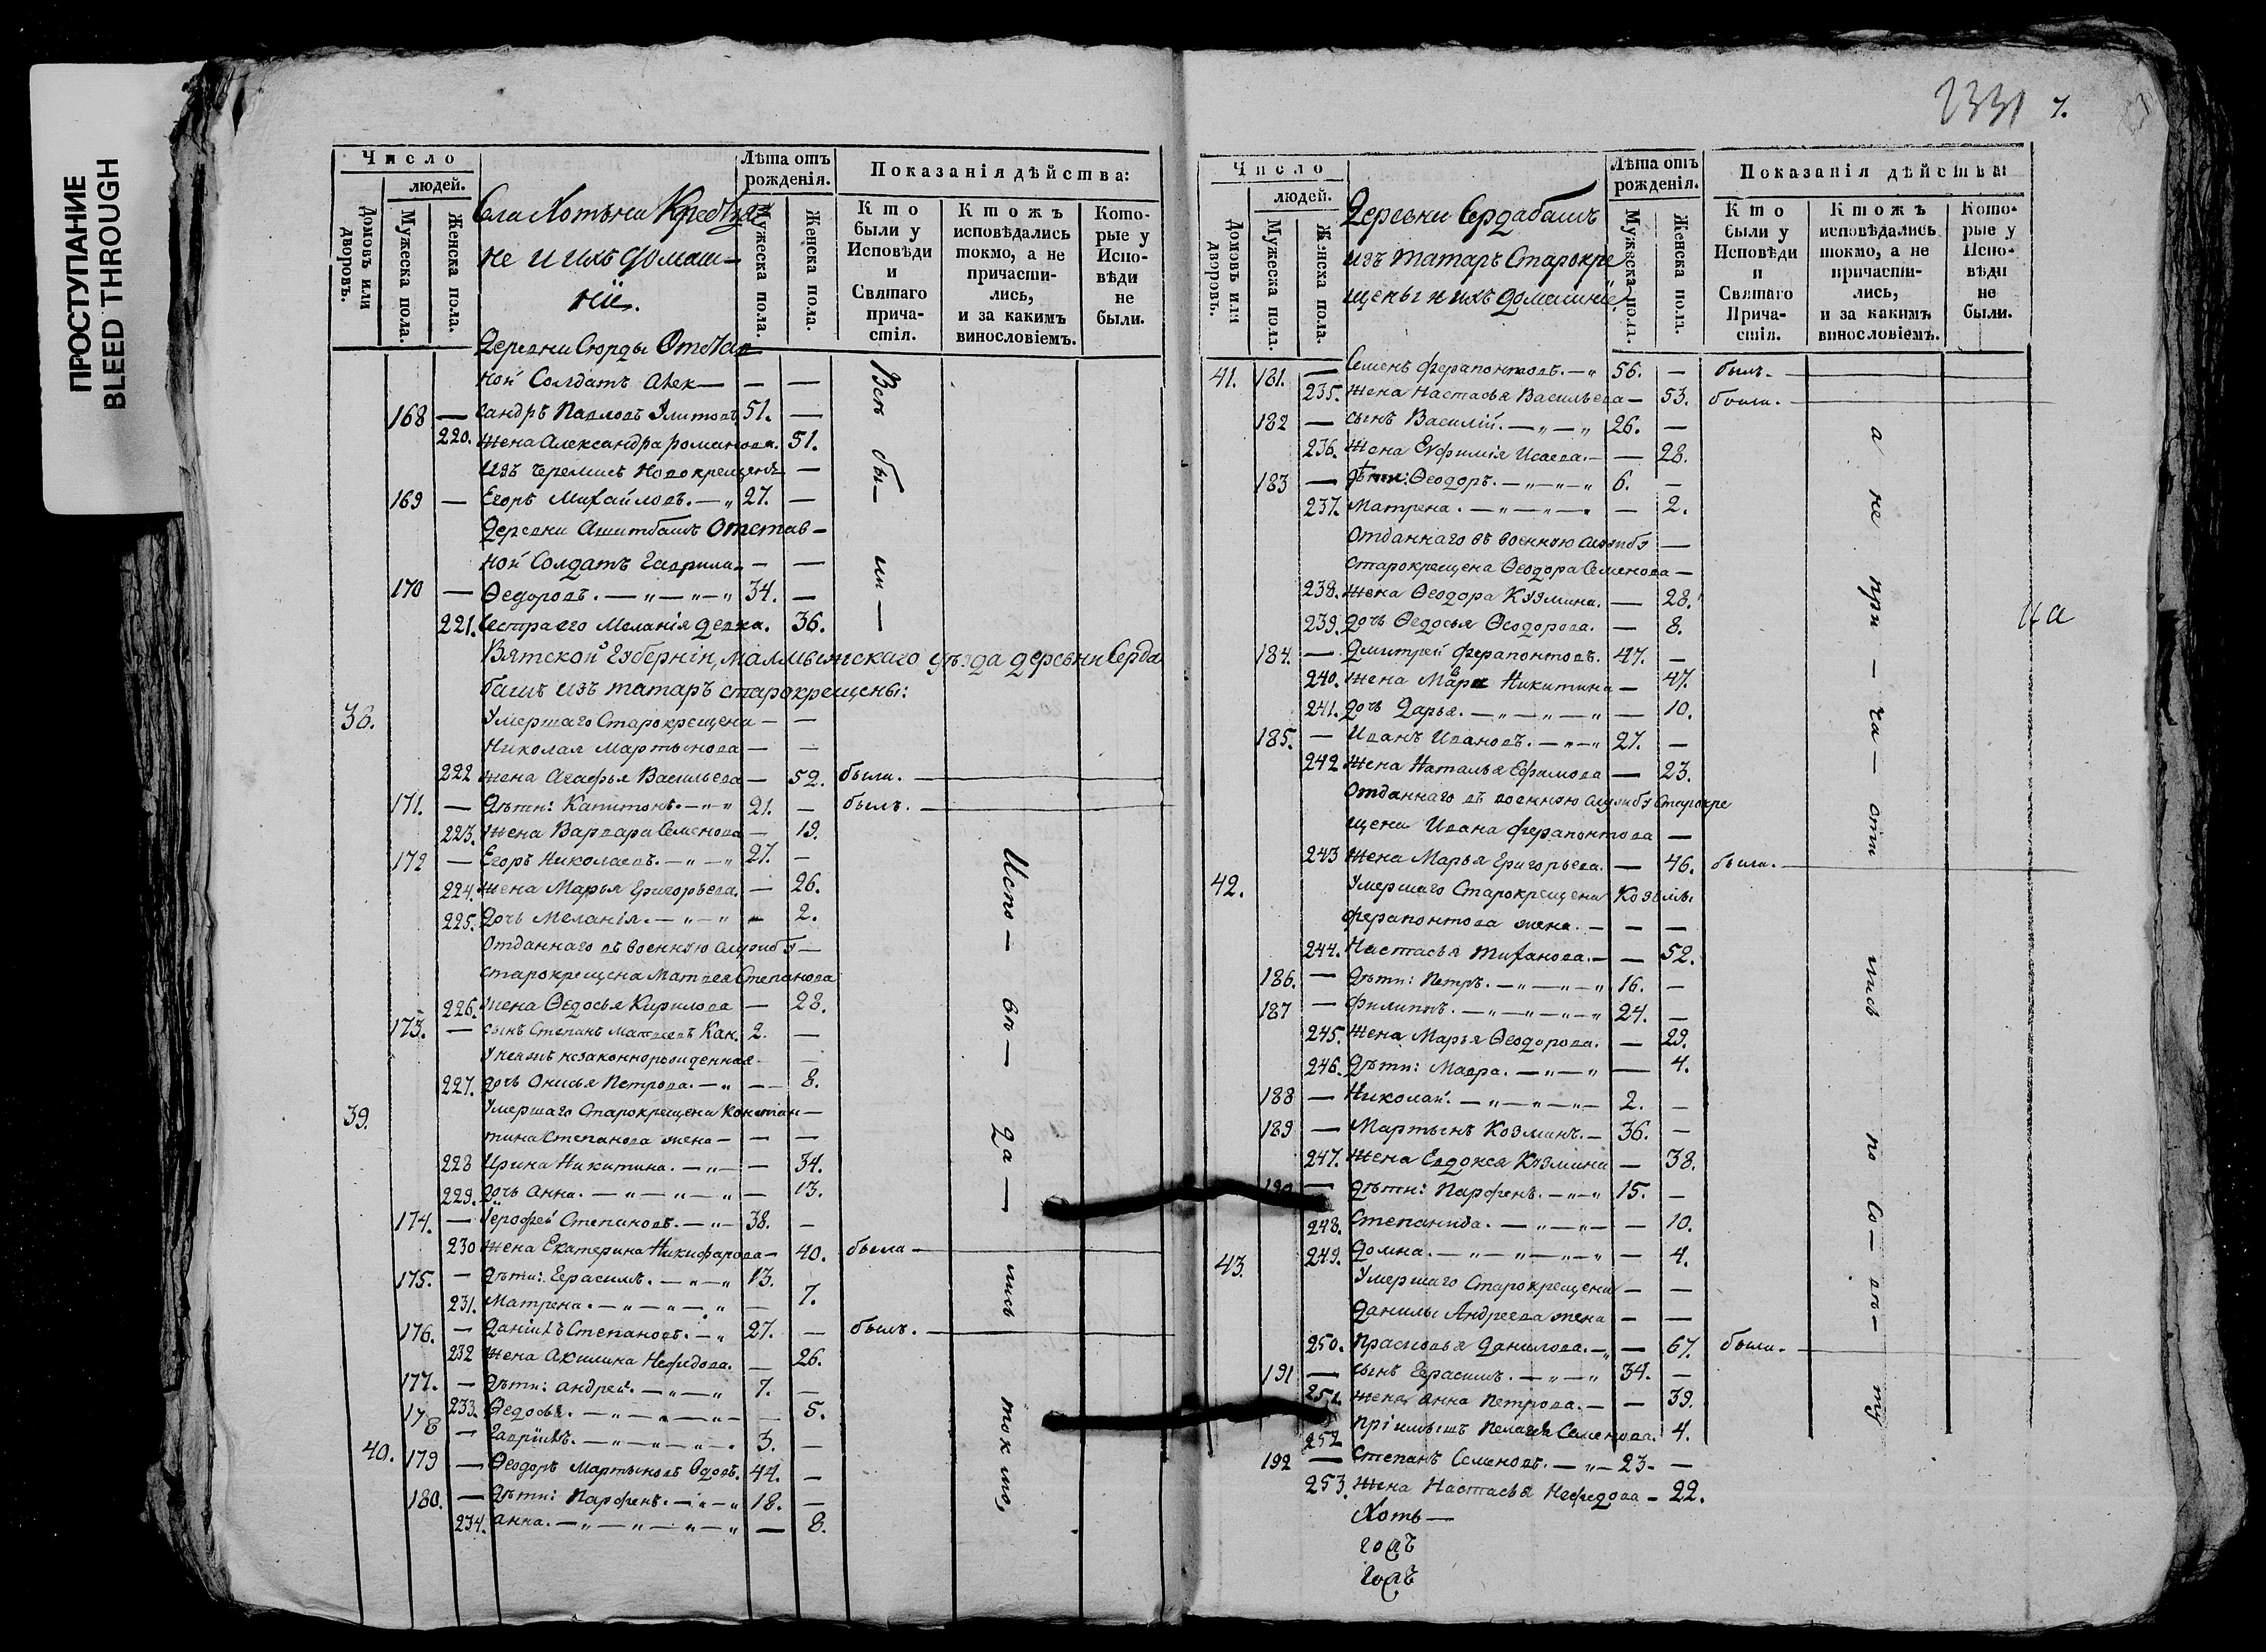 ПРОСТУПАНИЕ
BLEED THROUGH
Число
людей.
Домовъ или дворовъ.
Мужеска пола.
Женска пола.
Лѣта отъ рожденія.
Мужеска пола.
Женска пола.
Показанія дѣйства:
Кто были у Исповѣди и Святаго причастія.
Ктожъ исповѣдались токмо, а не причастились, и за какимъ винословіемъ.
Которые у Исповѣди не были.
не и ихъ домаш-
ніи.
ной Солдатъ Алек— — —
168 — сандръ Павловъ 51. —
220. жена Александра Романова. 51.
изъ черемисъ новокрещенъ —
169 — Егоръ Михайловъ. — „ 27. —
Деревни Ашитбашъ Отстав-
ной Солдатъ Гаврила — —
170 — Ѳедоровъ. — „ — „ — „ 34. —
221. Сестра его Меланія девка. 36.
Вятской Губерніи, Малмыжскаго уѣзда деревни Серда
башъ изъ татаръ старокрещены:
38. Умершаго Старокрещена — —
Николая Мартынова — —
222 жена Агафья Васильева — 52. была. —
171. — Дѣти: Капитонъ. — „ „ 21. — былъ. —
223. жена Варвара Семенова — 19.
172 — Егоръ Николаевъ. — „ — „ 27. —
224. жена Марья Григорьева. — 26.
225. дочь Меланія. — „ — „ — 2.
Отданнаго въ военную службу —
старокрещена Матвея Степанова
226. жена Ѳедосья Кирилова — 28.
173. — сынъ Степанъ Матвеевъ 2. —
незаконнорожденная —
227. дочь Онисья Петрова. — „ — 8.
39. Умершаго Старокрещена Констан —
тина Степанова жена — — —
228 Ирина Никитина. — „ — — 34.
229. дочь Анна. — „ — „ — „ — 13.
174. — Ерофей Степановъ. — „ — 38. —
230 жена Екатерина Никифарова — 40. была —
175. — Дѣти: Герасимъ. — „ — „ 13. —
231. Матрена. — „ — „ — „ — 7.
176. — Даніилъ Степановъ. — „ 27. — былъ. —
232 жена Акилина Нефедова. — 26.
177. — Дѣти: Андрей. — „ — „ 7. —
233. Ѳедосья. — „ — „ — „ — — 5.
178 — Гавріилъ. — „ — „ — „ 3. —
40. 179 — Ѳеодоръ Мартыновъ вдовъ. 44. —
180. — Дѣти: Парфенъ. — „ — „ 18. —
234. Анна. — „ — „ — „ — „ — 8.
Всѣ бы— ли —
Испо — вѣ — да — лись токмо,
2331 7.
Число
людей.
Домовъ или дворовъ.
Мужеска пола.
Женска пола.
Лѣта отъ рожденія.
Мужеска пола.
Женска пола.
Показанія дѣйства
Кто были у Исповѣди и Святаго Причастія.
Ктожъ исповѣдались токмо, а не причастились, и за какимъ винословіемъ.
Которые у Исповѣди не были.
Деревни Сердабашъ
изъ татаръ Старокре
щены и ихъ домашніе.
41. 181. — Семенъ Ферапонтовъ. — „ 56. — былъ. —
235. жена Настасья Васильева — 53. была. —
182 — сынъ Василій. — „ — „ 26. —
236. жена Евфимія Исаева. — — 28.
183 — Дѣти: Ѳеодоръ. — „ — „ — „ 6. —
237. Матрена. — „ — „ — „ — 2.
Отданнаго въ военную службу —
старокрещена Ѳеодора Семенова —
238. жена Ѳеодора Кузмина. — 28.
239. дочь Ѳедосья Ѳеодорова. — 8.
184. — Дмитрей Ферапонтовъ. 47. —
240. жена Никитина — 47.
241. дочь Дарья. — „ — „ — „ — 10.
185. — Иванъ Ивановъ. — „ — „ 27. —
242 жена Наталья Ефимова — 23.
Отданнаго въ военную службу Старокре
щена Ивана Ферапонтова —
243 жена Марья Григорьева. — 46. была. —
42. Умершаго Старокрещена Козьмы
Ферапонтова жена. — — —
244. Настасья Тиханова. — — 52.
186. — Дѣти: Петръ. — „ — „ — „ 16. —
187 — Филиппъ. — „ — „ — „ — „ 24. —
245. жена Марья Ѳеодорова. — 29.
246. Дѣти: Мавра. — „ — „ — 4.
188 — Николай. — „ — „ — „ — 2. —
189 — Мартынъ Козминъ. — 36. —
247. жена Евдокея Кузмина — 38.
190 — Дѣти: Парфенъ. — „ — „ 15. —
248. Степанида. — „ — „ — — 10.
43. 249. Домна. — „ — „ — „ — „ — 4.
Умершаго Старокрещена — —
Данилы Андреева жена — —
250. Прасковья Данилова. — „ — 67. была. —
191 — сынъ Герасимъ. — „ — „ 34. —
251. жена Анна Петрова. — — 39.
252 Пріимышъ Пелагея Семенова. 4.
192 — Степанъ Семеновъ. — „ — 23. —
253. жена Настасья Нефедова — 22.
Хоть —
а не при — ча — сти лись по со — вѣ — ту